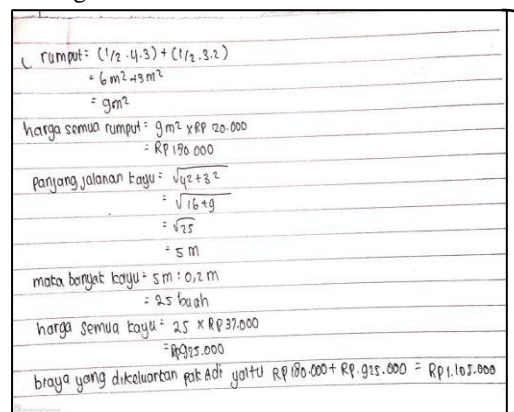 rumput = (1/2 . 4 . 3) + (1/2 . 3 . 2)
= 6 m² + 3 m²
= 9 m²
harga semua rumput = 9 m² x RP 20.000
= RP 180.000
panjang jalanan kayu = √4² + 3²
= √16 + 9
= √25
= 5 m
maka banyak kayu = 5 m : 0,2 m
= 25 buah
harga semua kayu = 25 x RP 37.000
= Rp 925.000
biaya yang dikeluarkan pak Adi yaitu RP 180.000 + RP. 925.000 = RP 1.105.000